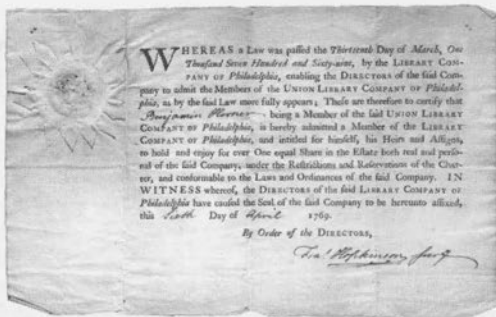 WHEREAS a Law was passed the Thirteenth Day of March, One
Thousand Seven Hundred and Sixty-nine, by the LIBRARY COM-
PANY OF Philadelphia, enabling the DIRECTORS of the said Com-
pany to admit the Members of the UNION LIBRARY COMPANY OF Philadel-
phia, as by the said Law more fully appears; These are therefore to certify that
Benjamin Horner being a Member of the said UNION LIBRARY
COMPANY OF Philadelphia, is hereby admitted a Member of the LIBRARY
COMPANY OF Philadelphia, and intitled for himself, his Heirs and Assigns,
to hold and enjoy for ever One equal Share in the Estate both real and perso-
nal of the said Company, under the Restrictions and Reservations of the Char-
ter, and conformable to the Laws and Ordinances of the said Company. IN
WITNESS whereof, the DIRECTORS of the said LIBRARY COMPANY OF
Philadelphia have caused the Seal of the said Company to be hereunto affixed,
this Sixth Day of April 1769.
By Order of the DIRECTORS,
Fras. Hopkinson, Secry